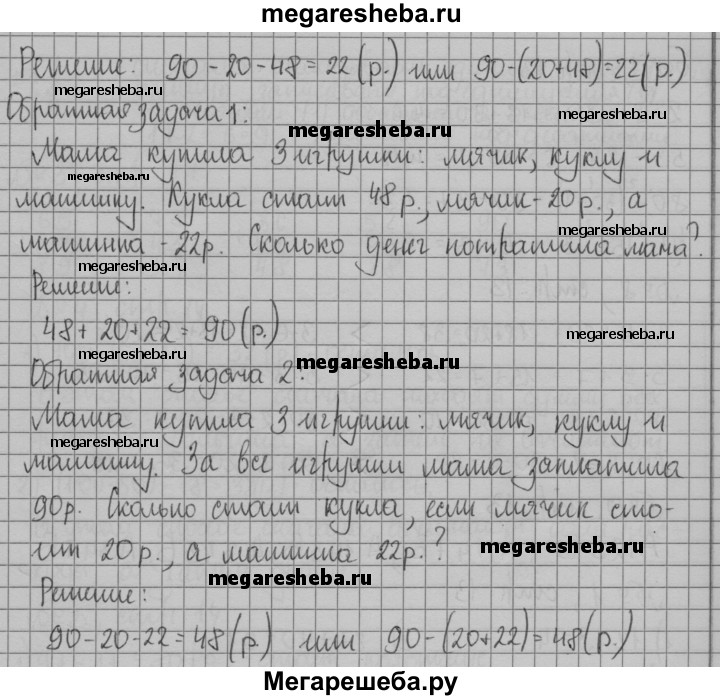 megaresheba.ru
Решение: 90 - 20 - 48 = 22 (р.) или 90-(20+48)=22(р.)
Обратная задача 1:
megaresheba.ru
megaresheba.ru
Мама купила 3 игрушки: мячик, куклу и
megaresheba.ru
машинку. Кукла стоит 48 р., мячик - 20 р., а
megaresheba.ru
машинка - 22 р. Сколько денег потратила мама?
megaresheba.ru
Решение:
48 + 20 + 22 = 90 (р.)
megaresheba.ru
megaresheba.ru
Обратная задача 2:
megaresheba.ru
Мама купила 3 игрушки: мячик, куклу и
megaresheba.ru
машину. За все игрушки мама заплатила
90 р. Сколько стоит кукла, если мячик сто-
ит 20 р., а машинка 22 р.?
megaresheba.ru
megaresheba.ru
Решение:
90 - 20 - 22 = 48 (р.) или 90 - (20+22) = 48 (р.)
Мегарешеба.ру